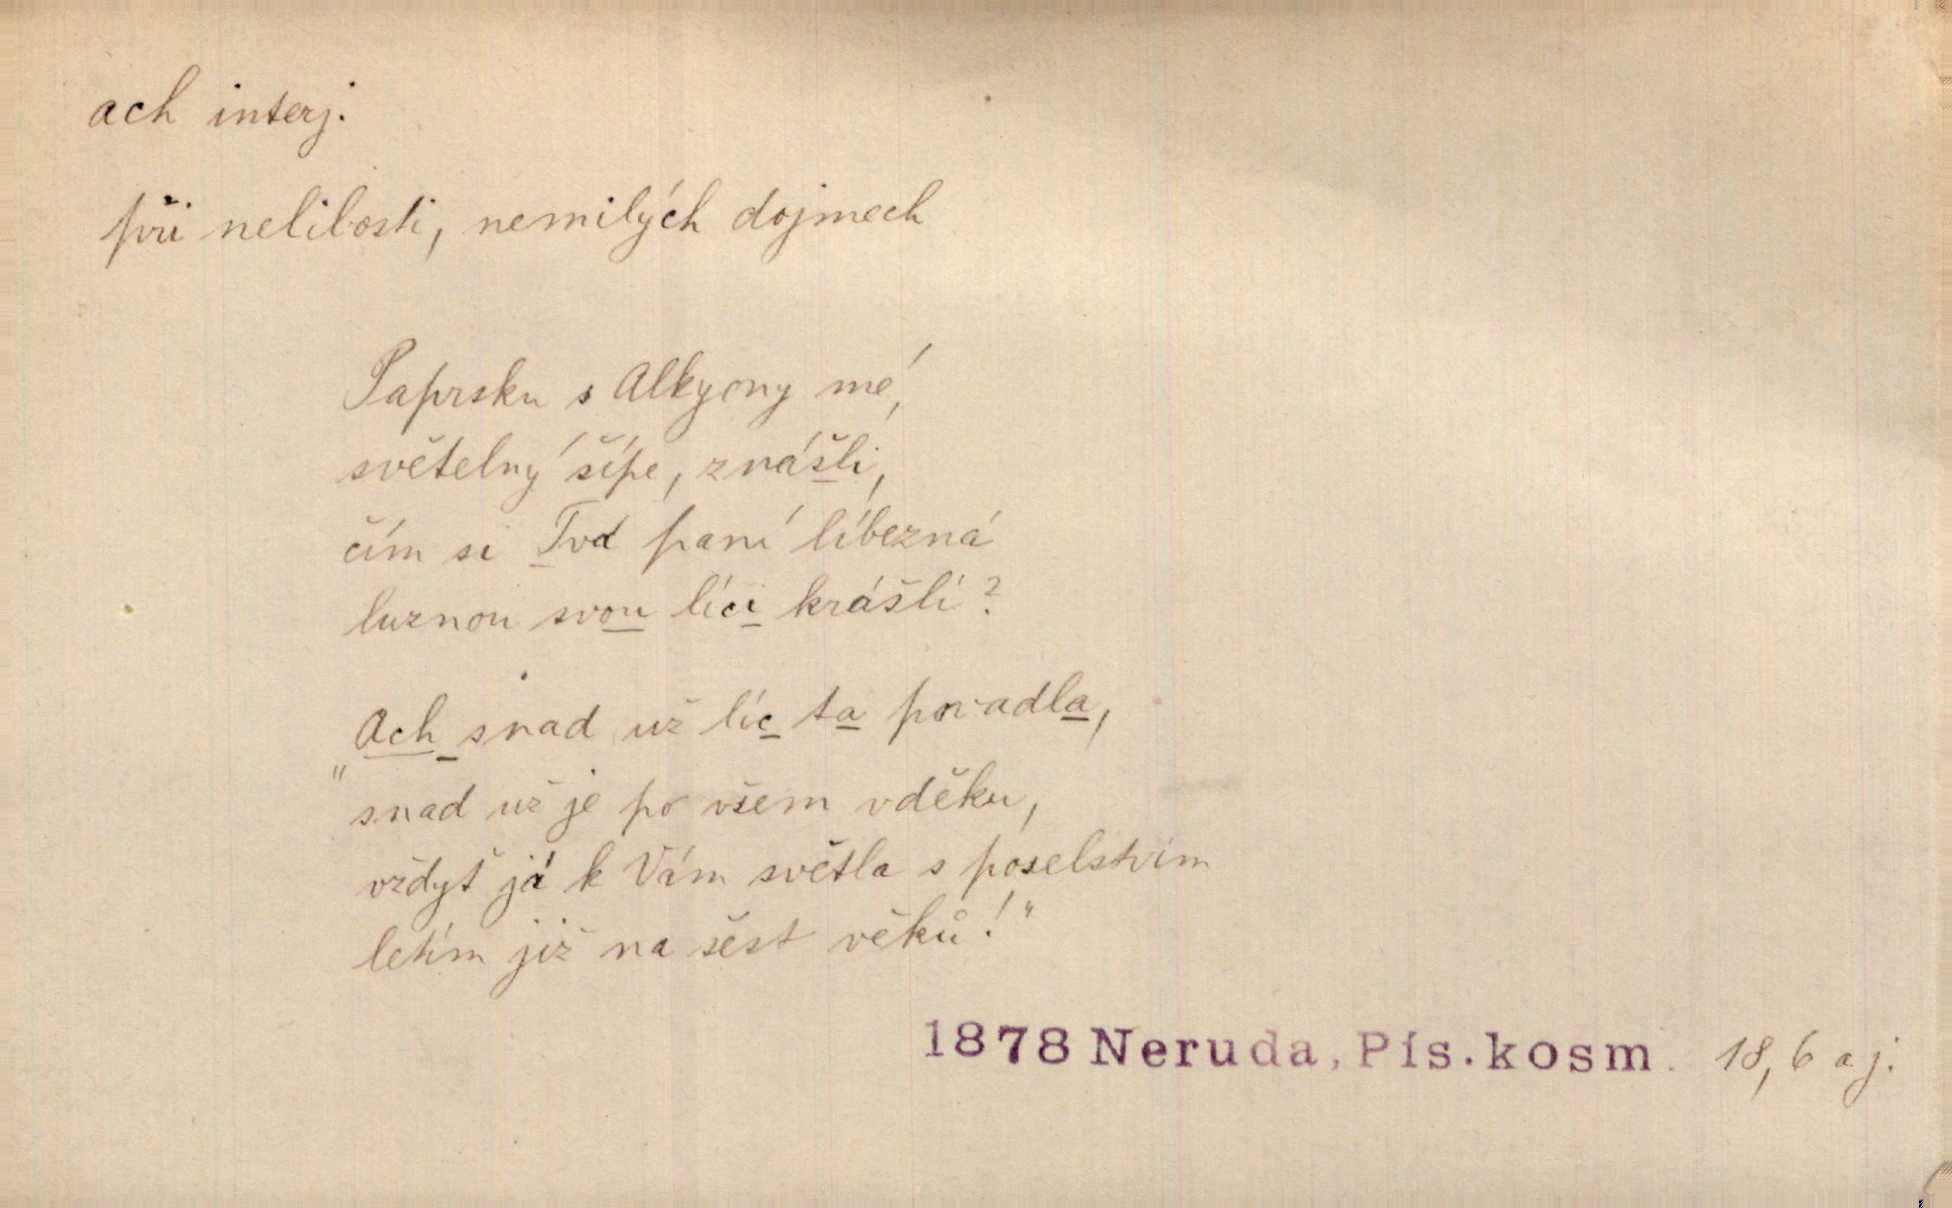 ach interj.
při nelibosti, nemilých dojmech
Paprsku s Alkyony mé,
světelný šípe, znášli,
čím si Tvá paní líbezná
luznou svou líci krášlí?
Ach snad už líc ta povadla,
"snad už je po všem vděku,
vždyť já k Vám světla s poselstvím
letím již na šest věků!"
1878 Neruda, Pís. kosm. 18, 6 a j.